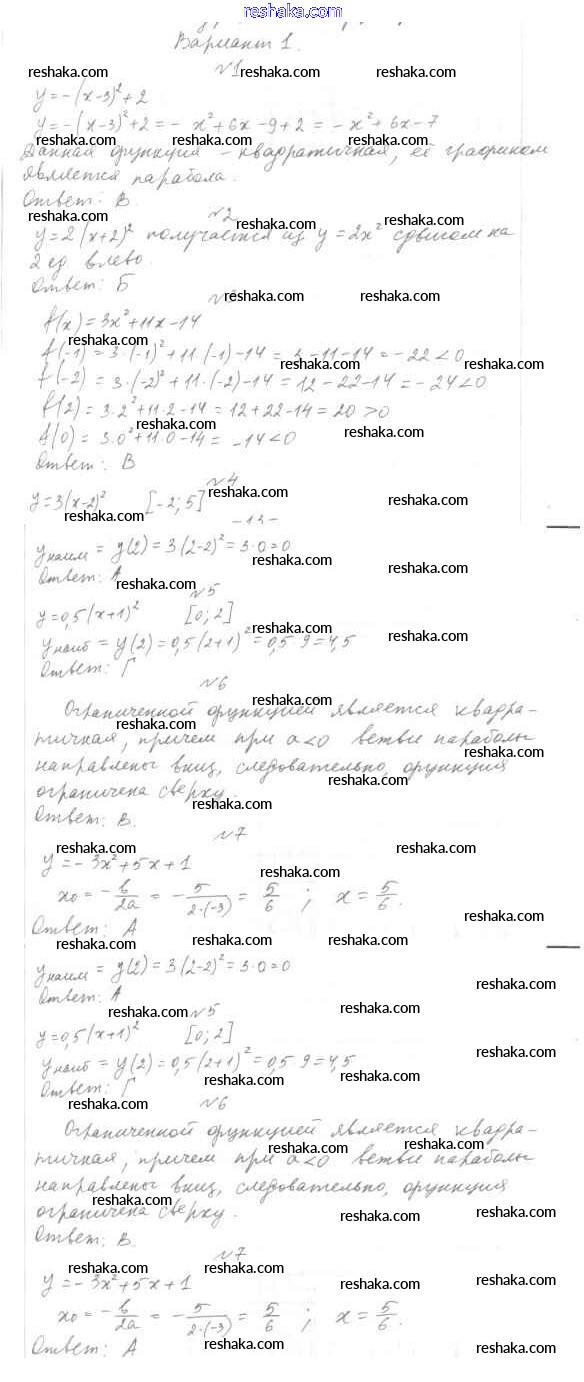 www.reshaka.com
Вариант 1.
№1
y=-(x-3)²+2
y=-(x-3)²+2 = - x²+6x-9+2 = -x²+6x-7
Данная функция - квадратичная, её графиком
является парабола.
Ответ: В.
№2
y=2(x+2)² получается из y=2x² сдвигом на
2 ед влево.
Ответ: Б
f(x) = 3x²+11x-14
f(-1) = 3·(-1)²+11·(-1)-14 = 3-11-14 = -22<0
f(-2) = 3·(-2)²+11·(-2)-14 = 12-22-14 = -24<0
f(2) = 3·2²+11·2-14 = 12+22-14 = 20>0
f(0) = 3·0²+11·0-14 = -14<0
Ответ: В
№4
y=3(x-2)² [-2; 5]
-13-
yнаим = y(2) = 3(2-2)² = 3·0=0
Ответ: А
№5
y=0,5(x+1)² [0; 2]
yнаиб = y(2) = 0,5(2+1)² = 0,5·9 = 4,5
Ответ: Г
№6
Ограниченной функцией является квадра-
тичная, причем при a<0 ветви параболы
направлены вниз, следовательно, функция
ограничена сверху.
Ответ: В.
№7
y=-3x²+5x+1
x₀ = -b/2a = -5/2·(-3) = 5/6 ; x = 5/6.
Ответ: А
yнаим = y(2) = 3(2-2)² = 3·0=0
Ответ: А
№5
y=0,5(x+1)² [0; 2]
yнаиб = y(2) = 0,5(2+1)² = 0,5·9 = 4,5
Ответ: Г
№6
Ограниченной функцией является квадра-
тичная, причем при a<0 ветви параболы
направлены вниз, следовательно, функция
ограничена сверху.
Ответ: В.
№7
y=-3x²+5x+1
x₀ = -b/2a = -5/2·(-3) = 5/6 ; x = 5/6.
Ответ: А
reshaka.com